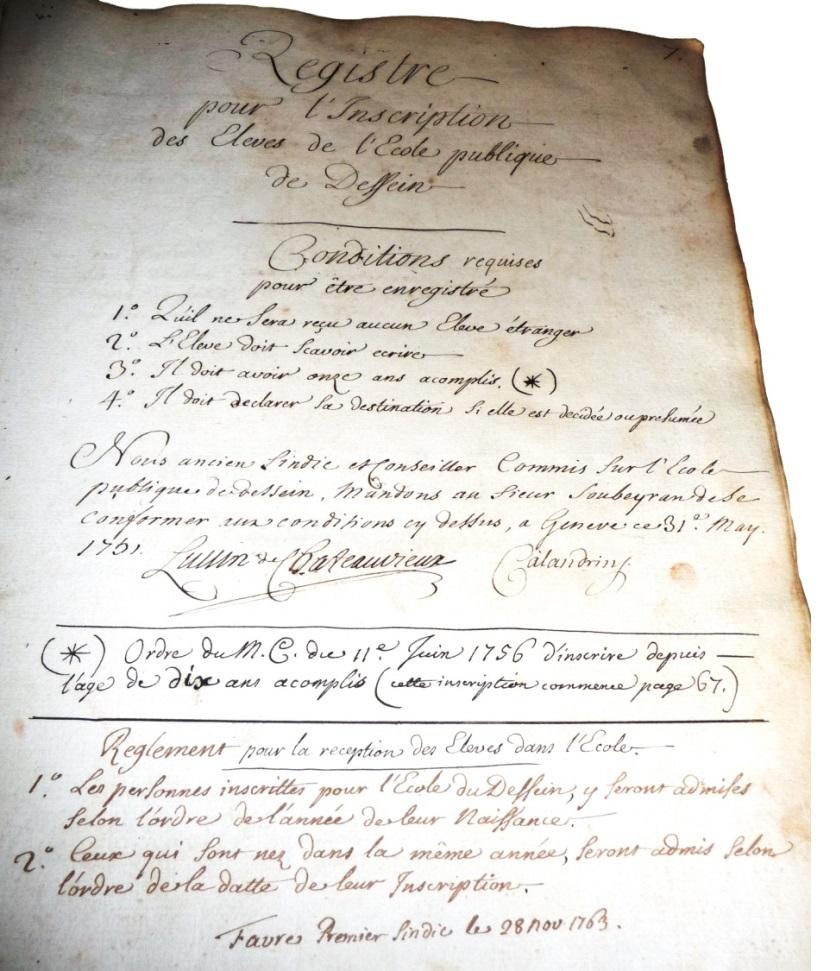 7.
Registre
pour l'Inscription
des Eleves de l'Ecole publique
de Dessein
Conditions requises
pour être enregistré
1.º Qu'il ne sera reçu aucun Eleve étranger
2.º L'Eleve doit scavoir ecrire
3.º Il doit avoir onze ans acomplis. (*)
4.º Il doit declarer sa destination si elle est decidée ou presumée
Nous ancien Sindic et Conseiller Commis sur l'Ecole
publique de dessein, Mandons au Sieur Soubeyran de se
conformer aux conditions cy dessus, a Geneve ce 31.e May.
1751.
Lullin de Chateauvieux Calandrini
(*) Ordre du M. C. du 11.e Juin 1756 d'inscrire depuis
l'age de dix ans acomplis (cette inscription commence page 67.)
Reglement pour la reception des Eleves dans l'Ecole.
1.º Les personnes inscrittes pour l'Ecole du Dessein, y seront admises
selon l'ordre de l'année de leur Naissance.
2.º Ceux qui sont nez dans la même année, seront admis selon
l'ordre de la datte de leur Inscription.
Favre Premier Sindic le 28 nov 1763.